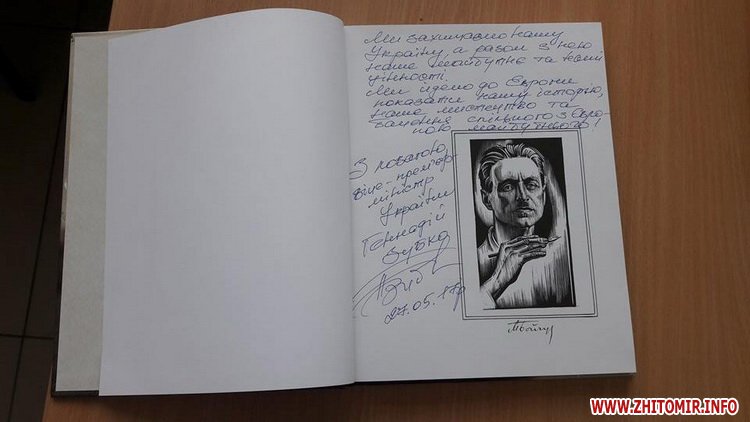 Ми захищаємо нашу
Україну, а разом з нею
наше майбутнє та наші
цінності.
Ми йдемо до Європи
показати нашу історію,
наше мистецтво та
бачення спільного з Євро-
пою майбутнього!
З повагою,
віце-прем'єр-
міністр
України
Геннадій
Зубко
27.05.17р
www.zhitomir.info